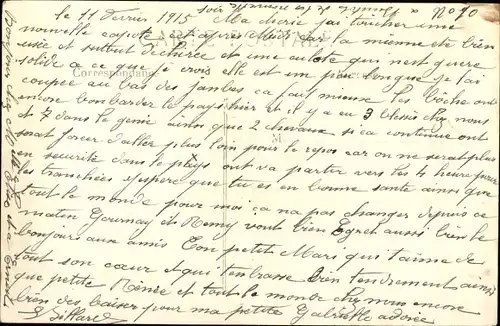 le 11 Fevrier 1915 Ma cherie j'ai toucher une
nouvelle capote cet apres Midi car la mienne été bien
usée et surtout dechirée et une culote qui n'est guere
solide a ce que je crois elle est un peu longue je l'ai
Correspondance
coupée au bas des jambes ca fait mieux les bôche ont
encore bombarder le pays hier et il y a eu 3 blessés chez nous
et 7 dans le genie ainsi que 2 chevaux si ca continue ont
serat forcer d'aller plus loin pour le repos car on ne serat plus
en securité dans le pays ont va partir vers les 4 heure pour
les tranchées j'espere que tu es en bonne santé ainsi que
tout le monde pour moi ca na pas changer depuis ce
matin Gournay et Remy vont bien Egret aussi bien le
bonjours aux amis Ton petit Mari qui t'aime de
tout son cœur et qui t'embrasse bien tendrement ainsi
que petite Renée et tout le monde chez nous encore
bien des baiser pour ma petite Gabrielle adorée
No 20
Bonjour chez